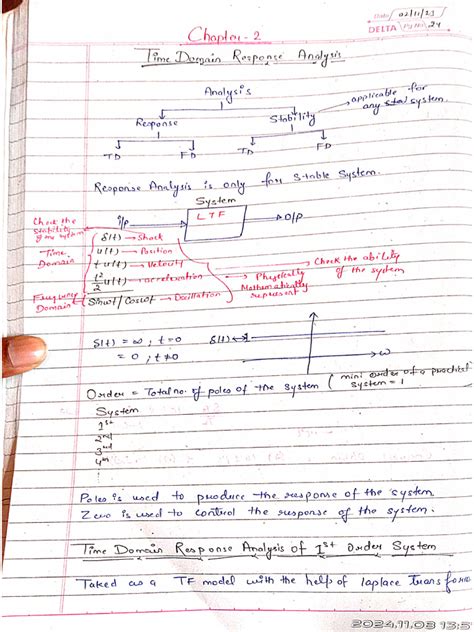 Date 02/11/23
DELTA Pg No. 24
Chapter - 2
Time Domain Response Analysis
Analysis
Response
Stability
applicable for
any system.
TD
FD
TD
FD
Response Analysis is only for Stable System.
System
i/p
LTF
O/P
Check the
stability
of the system
δ(t) → Shock
Time
Domain
u(t) → Position
tu(t) → Velocity
t²/2 u(t) → acceleration
Physically
Mathematically
represent
Check the ability
of the system
Frequency
Domain
Sinωt/Cosωt → Oscillation
δ(t) = ∞ ; t=0
= 0 ; t≠0
δ(t)
ω
Order = Total no. of poles of the system ( mini order of a practical
system = 1
System
1st
2nd
3rd
4th
Poles is used to produce the response of the system
Zero is used to control the response of the system.
Time Domain Response Analysis of 1st Order System
Taked as a TF model with the help of laplace transform
2024.11.03 13:5